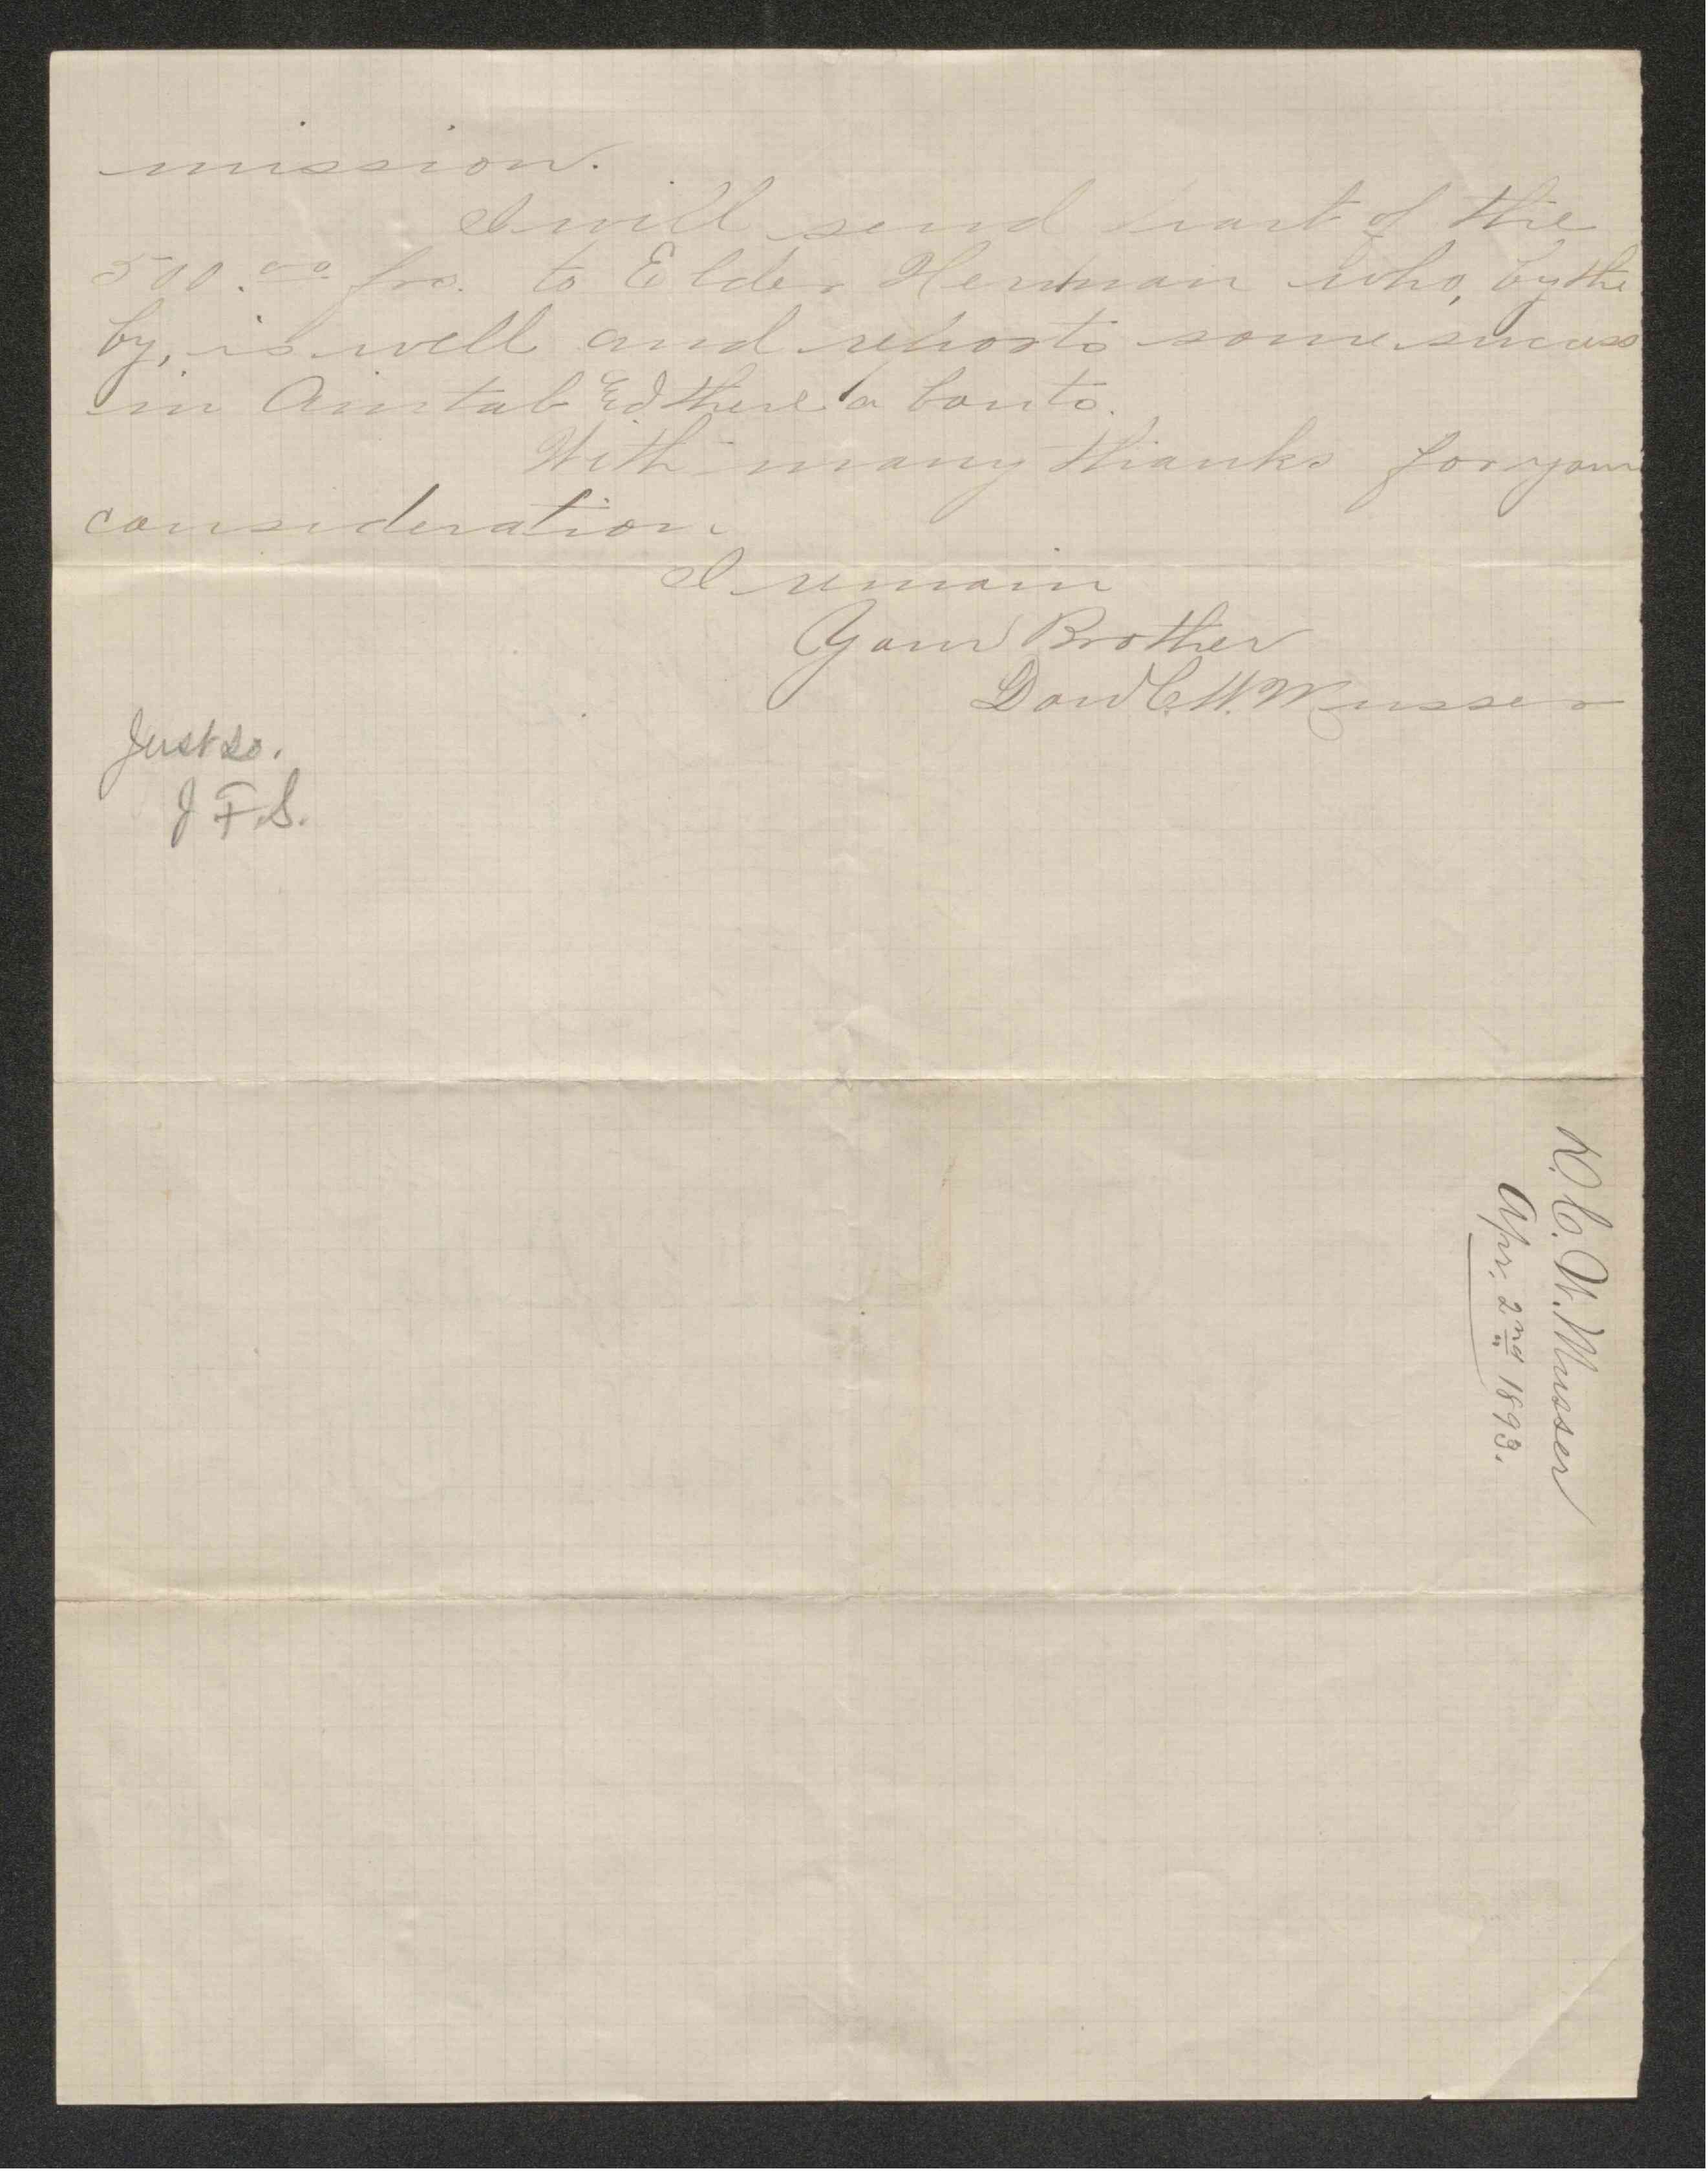 mission.
I will send part of the
500.00 frs. to Elder Herman who, by the
by, is well and reports some success
in Aintab & there a bouts.
With many thanks for your
consideration
I remain
Your Brother
Don C. W. Musser
Just so.
J F. S.
D. C. W. Musser
Apr. 2nd 1893.